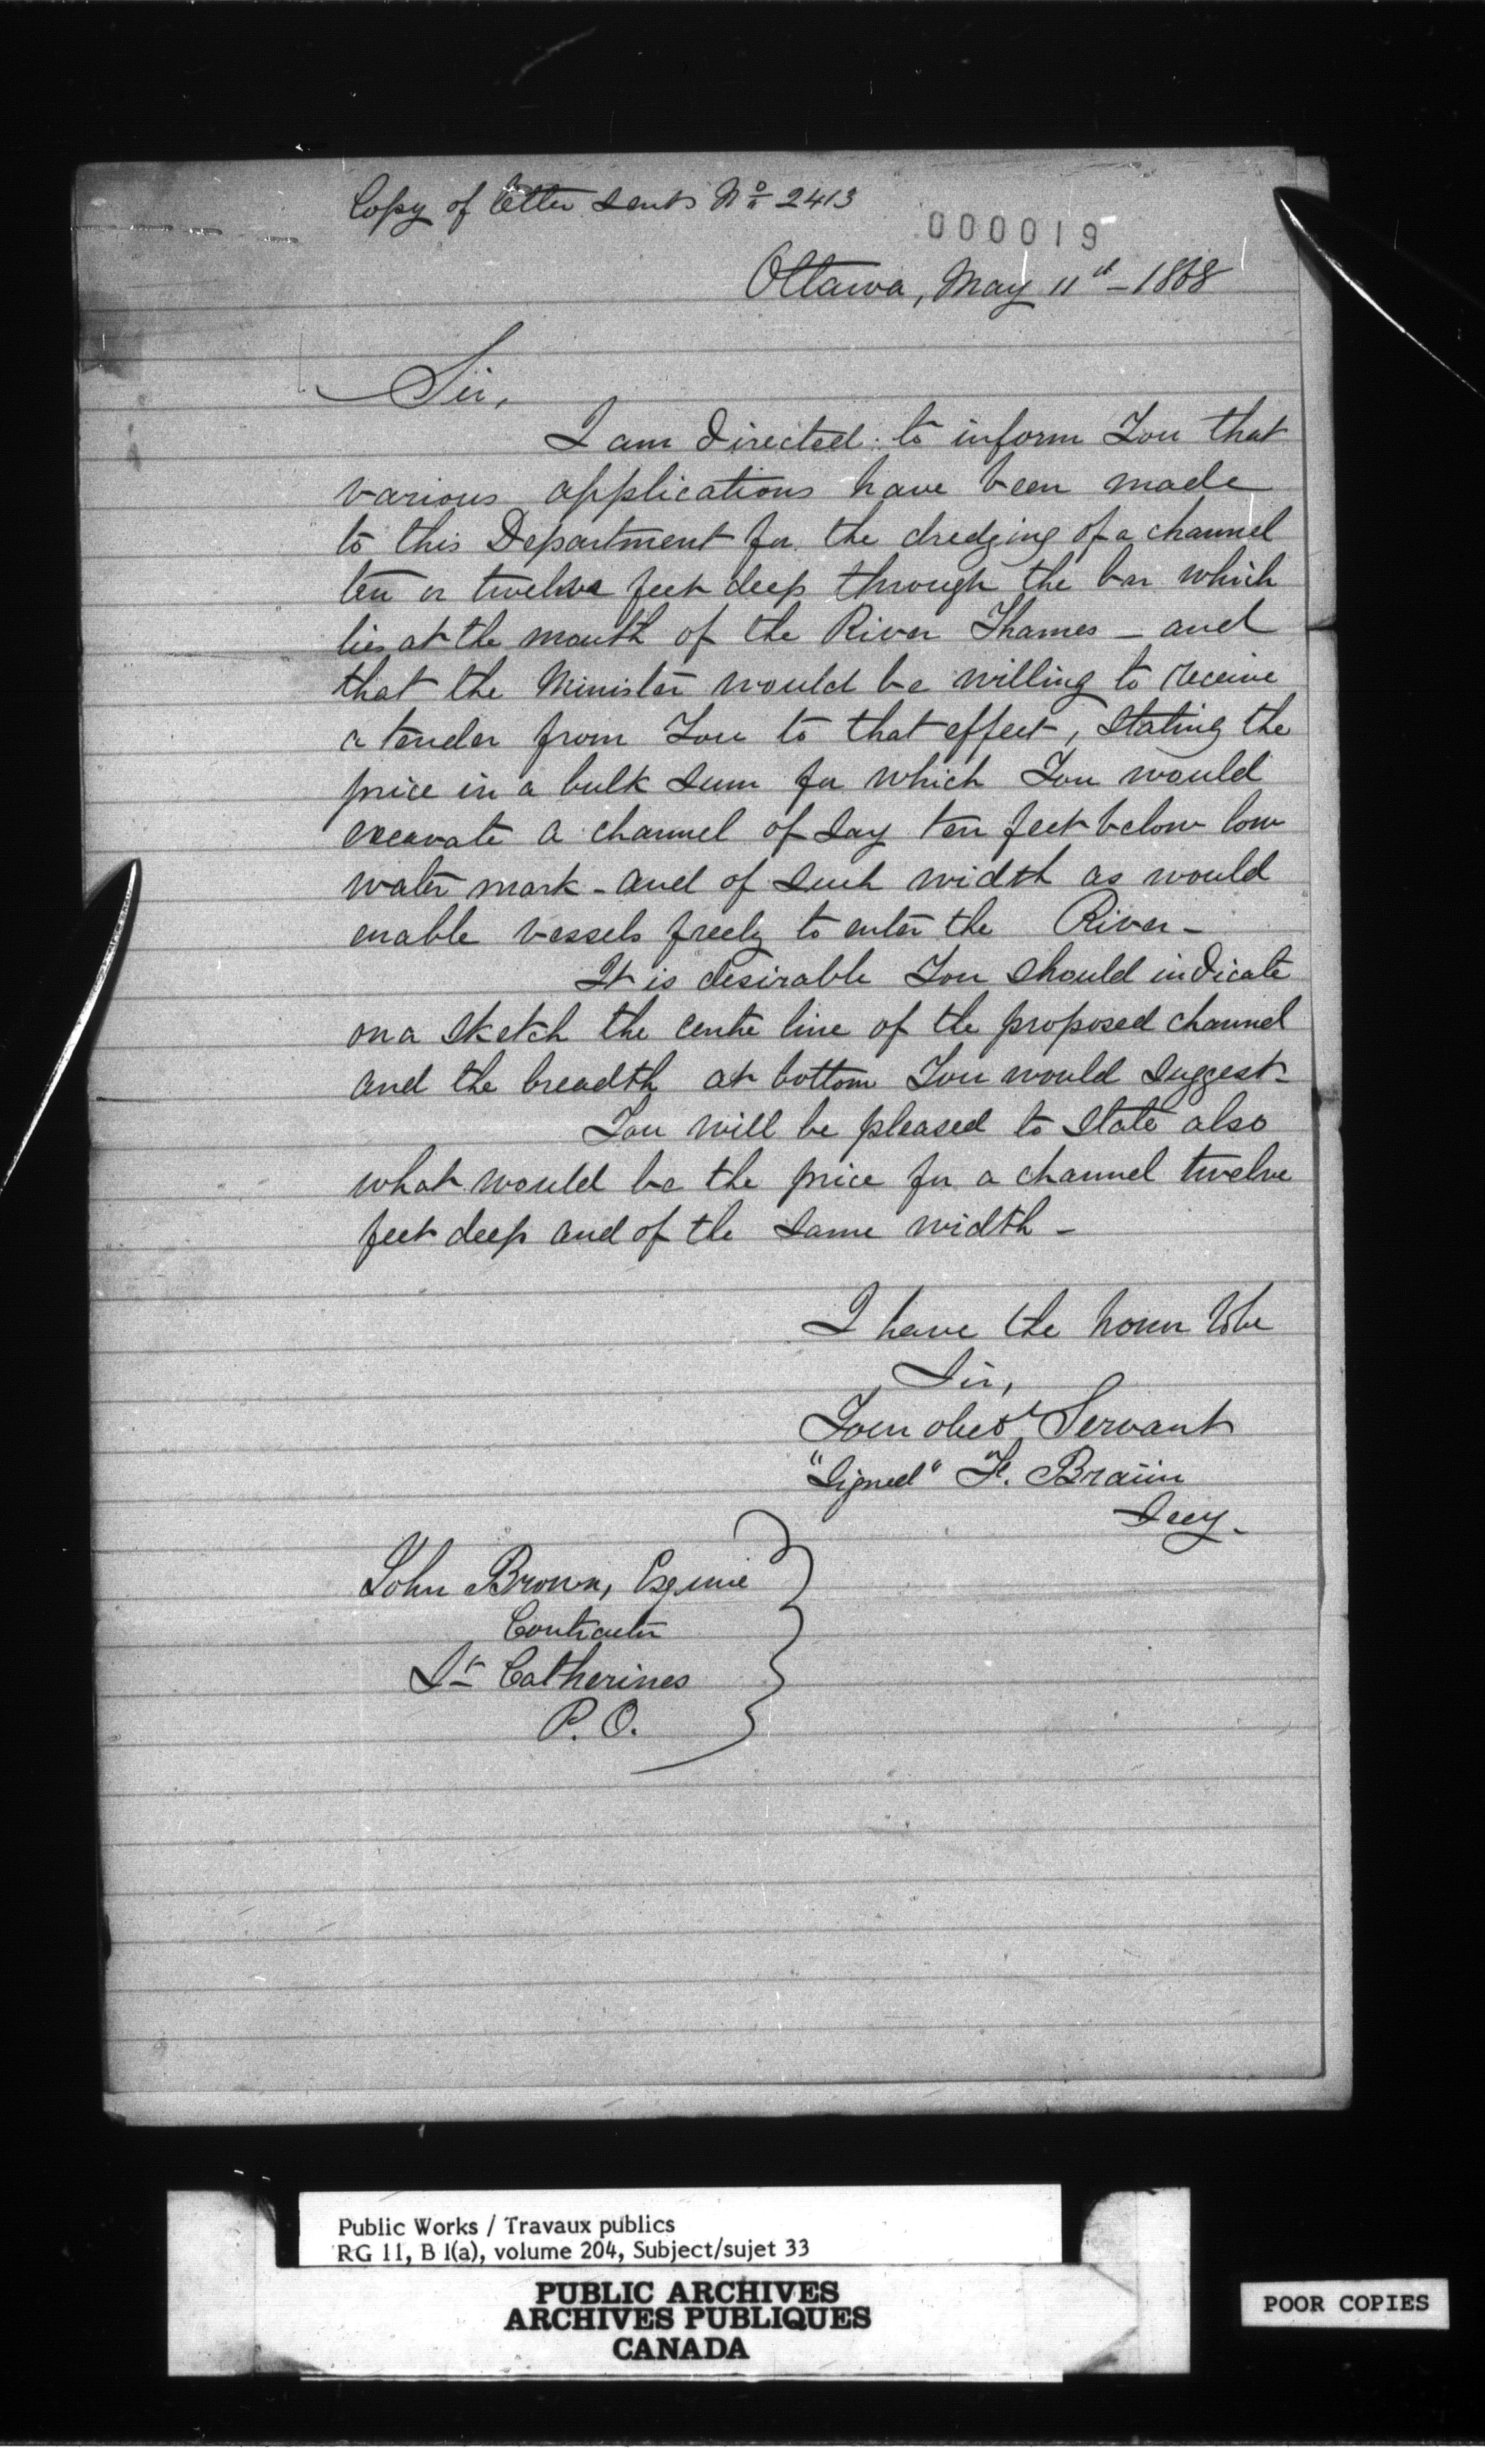 Copy of letter sent No 2413
000019
Ottawa, May 11th - 1868
Sir,
I am directed to inform You that
various applications have been made
to this Department for the dredging of a channel
ten or twelve feet deep through the bar which
lies at the mouth of the River Thames - and
that the Minister would be willing to receive
a tender from You to that effect, stating the
price in a bulk sum for which You would
excavate a channel of say ten feet below low
water mark - and of such width as would
enable vessels freely to enter the River -
It is desirable You should indicate
on a sketch the centre line of the proposed channel
and the breadth at bottom You would suggest -
You will be pleased to state also
what would be the price for a channel twelve
feet deep and of the same width -
I have the honor to be
Sir,
Your obedt Servant
"Signed" F. Braün
Secy.
John Brown, Esquire
Contractor
St Catherines
P. O.
Public Works / Travaux publics
RG 11, B 1(a), volume 204, Subject/sujet 33
PUBLIC ARCHIVES
ARCHIVES PUBLIQUES
CANADA
POOR COPIES